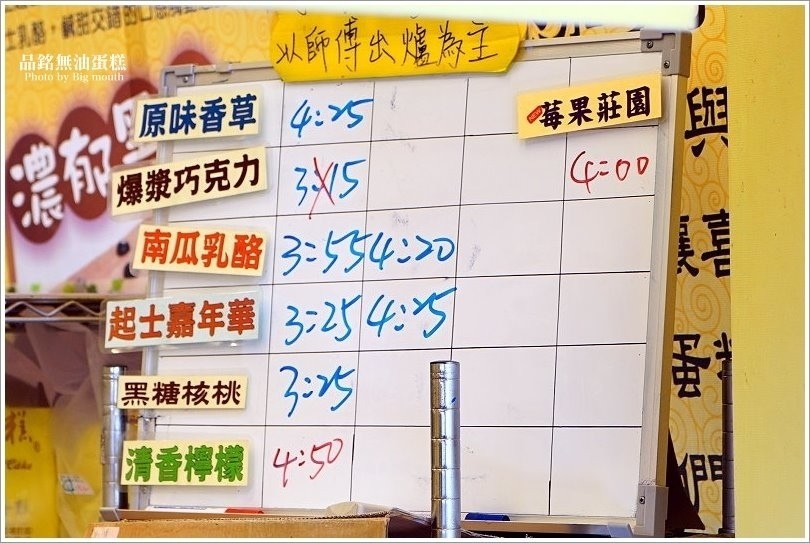 士乳酪，鹹甜交錯的口感
品銘無油蛋糕
Photo by Big mouth
濃郁
以師傅出爐為主
原味香草 4:25
莓果莊園
4:00
爆漿巧克力 3:15
南瓜乳酪 3:55 4:20
起士嘉年華 3:25 4:25
黑糖核桃 3:25
清香檸檬 4:50
與
喜
蛋糕
們